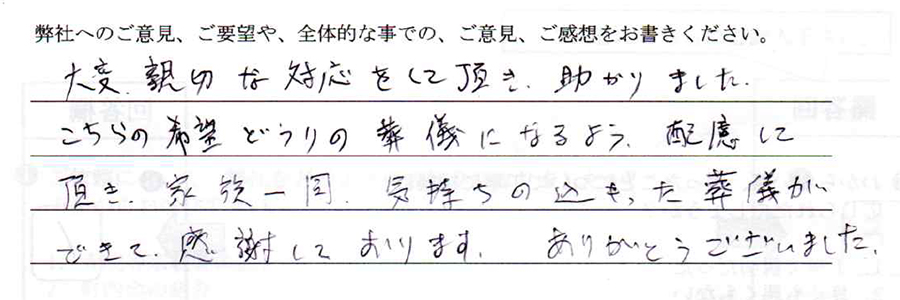 弊社へのご意見、ご要望や、全体的な事での、ご意見、ご感想をお書きください。
大変、親切な対応をして頂き、助かりました。
こちらの希望どうりの葬儀になるよう、配慮して
頂き、家族一同、気持ちの込もった葬儀が
できて、感謝しております。 ありがとうございました。